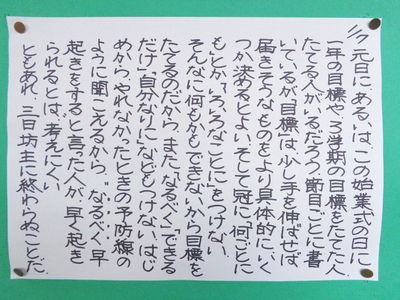 元日に、あるいは、この始業式の日に
一年の目標や、3学期の目標をたてた人、
たてる人がいるだろう。節目ごとに書
いているが「目標」は少し手を伸ばせば
届きそうなものをより具体的に、いく
つか決めるとよい。そして冠に、「何ごとに
も」とか、「いろいろなことに」をつけない。
そんなに何もかもできないから目標を
たてるのだから。また、「なるべく」「できる
だけ」「自分なりに」などもつけない。はじ
めから、やれなかったときの予防線の
ように聞こえるから。“なるべく、早
起きをする”と言った人が、早く起き
られるとは、考えにくい。
ともあれ、三日坊主に終わらぬことだ。